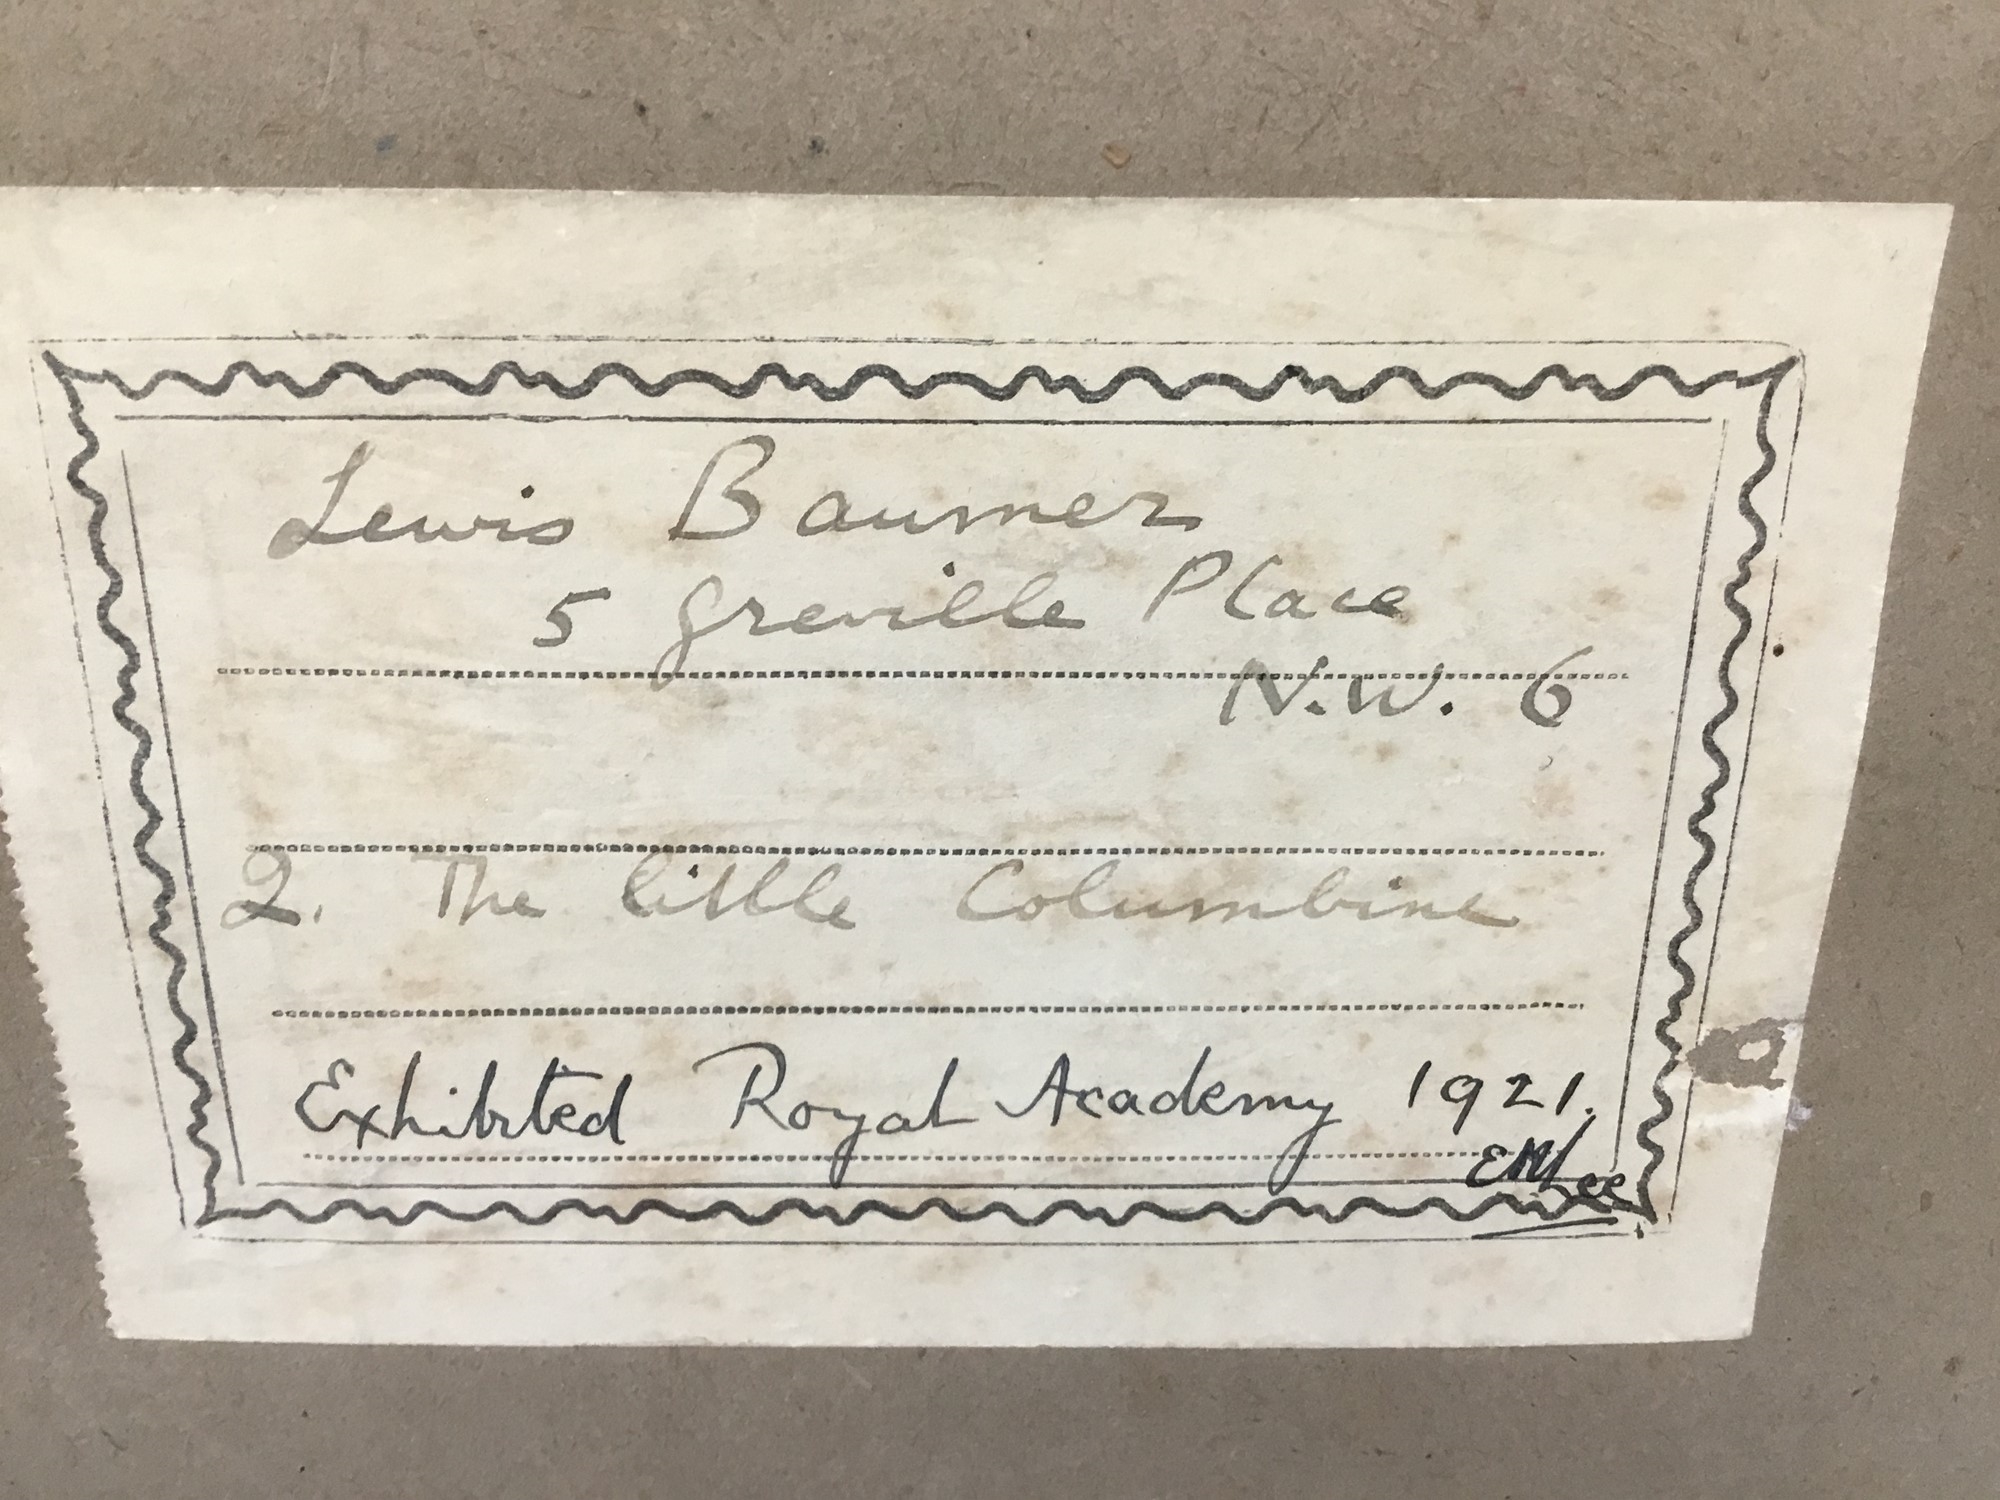 Lewis Baumer
5 Greville Place
N.W. 6
2. The little Columbine
Exhibited Royal Academy 1921.
EMLee